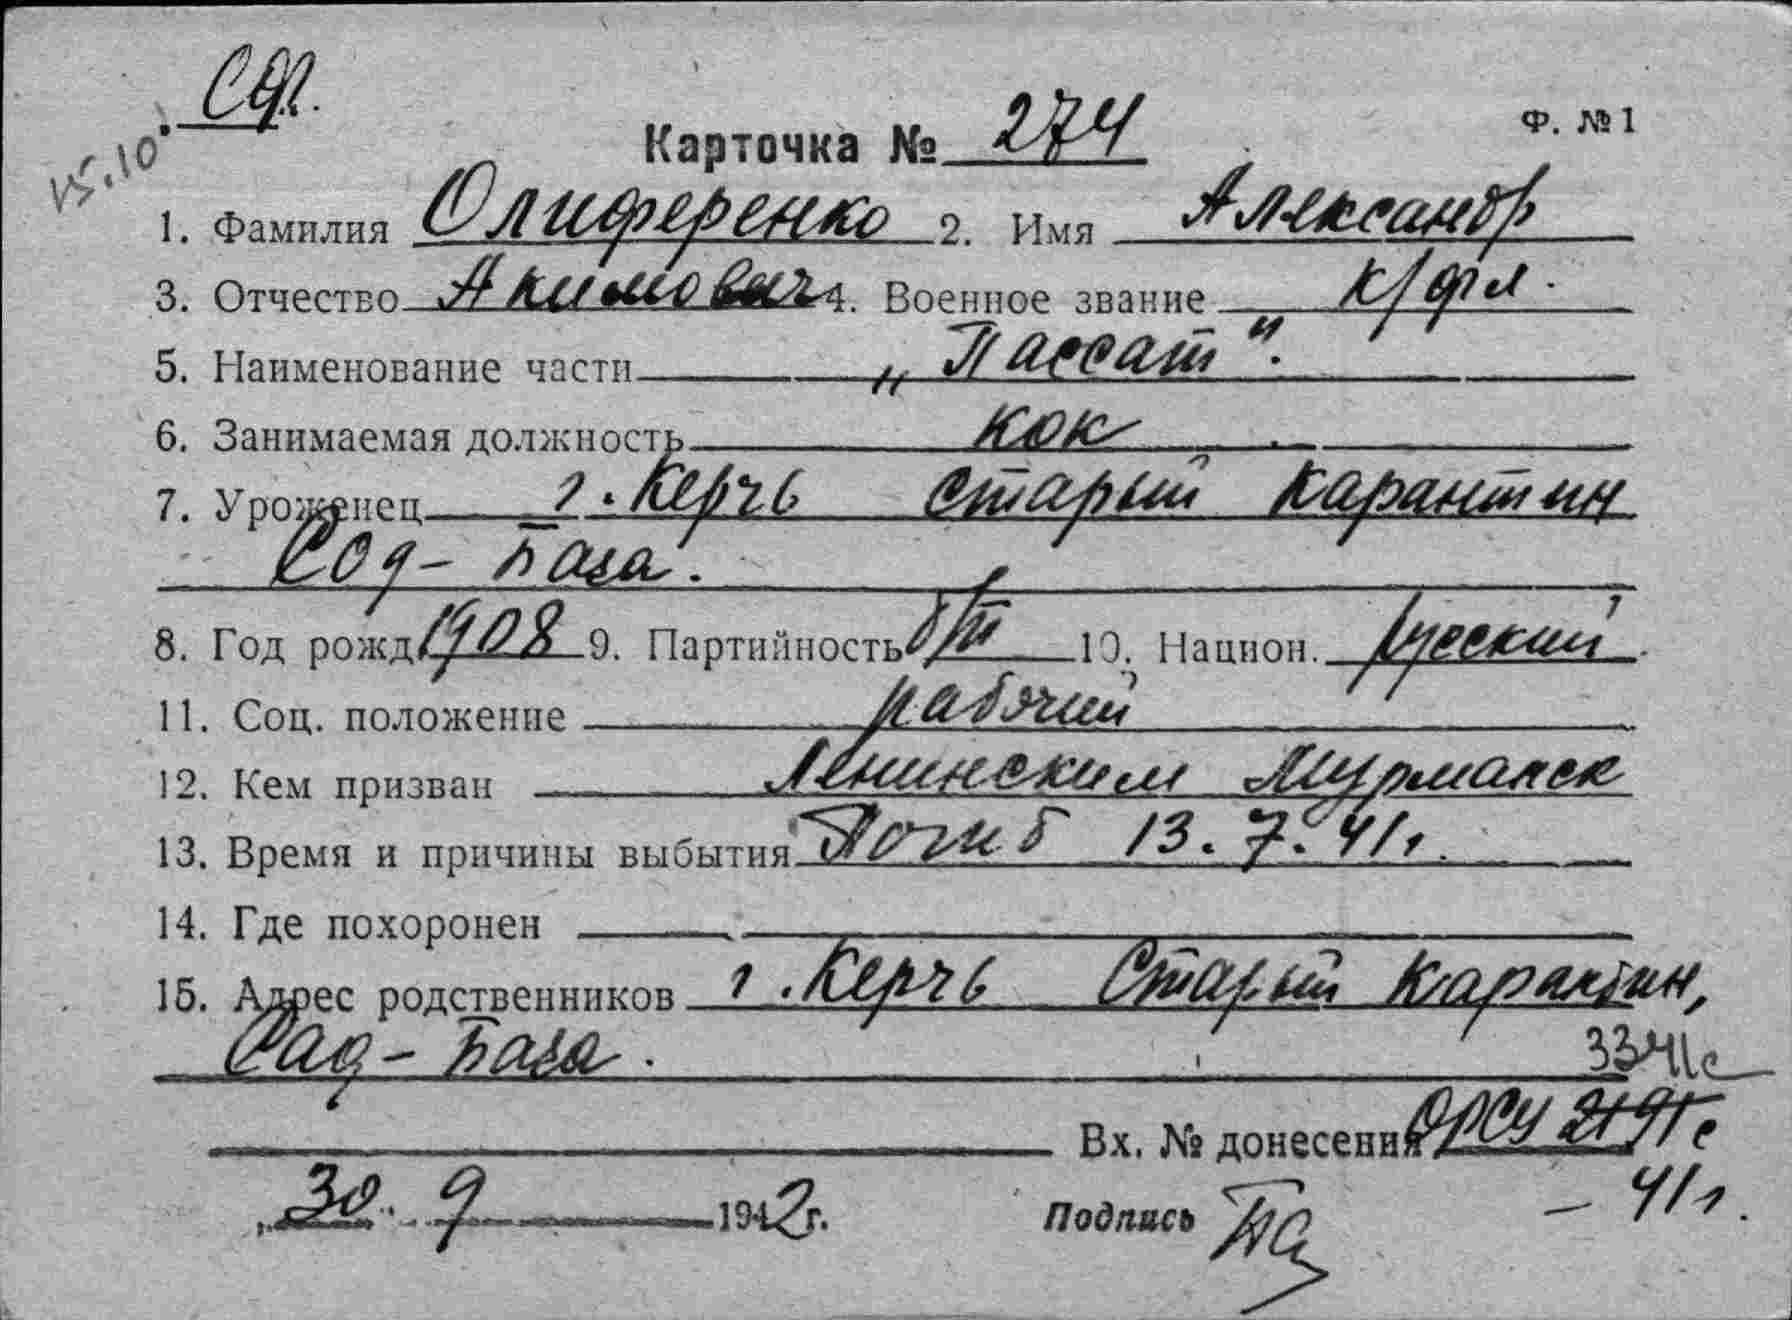 СФл.
15.10.
Карточка № 274
Ф. № 1
1. Фамилия Олиференко 2. Имя Александр
3. Отчество Акимович 4. Военное звание к/фл.
5. Наименование части „Пассат".
6. Занимаемая должность кок
7. Уроженец г. Керчь Старый Карантин
Сад-база.
8. Год рожд. 1908 9. Партийность б/п 10. Национ. русский
11. Соц. положение рабочий
12. Кем призван Ленинским Мурманск
13. Время и причины выбытия Погиб 13.7.41г.
14. Где похоронен
15. Адрес родственников г. Керчь Старый Карантин,
Сад-база.
3341с
Вх. № донесения ОРСУ 2191с
„30" 9 1942г. Подпись
– 41г.